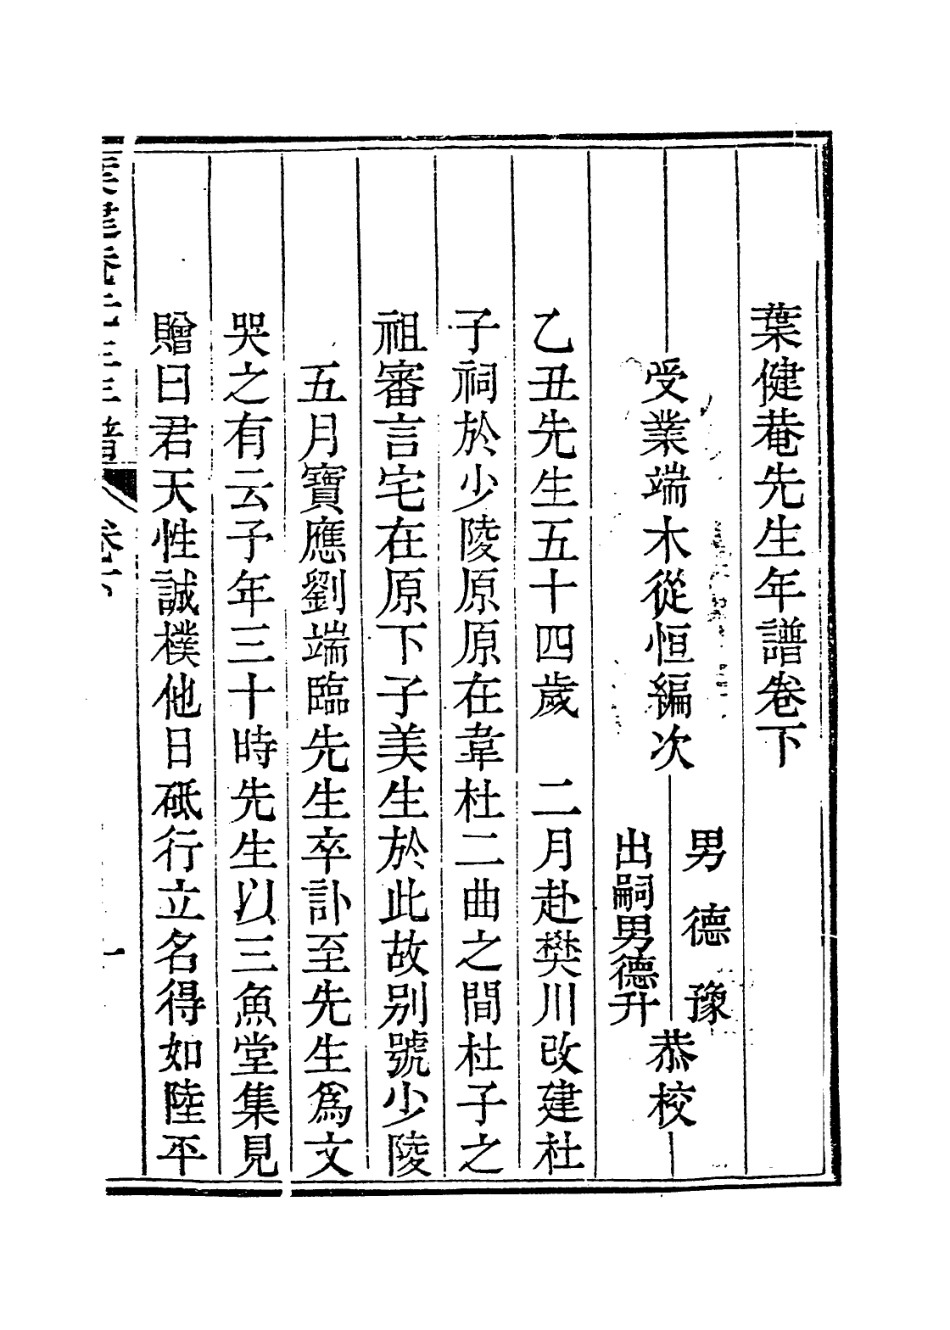 葉健菴先生年譜卷下
受業端木從恒編次
男德豫
出嗣男德升
恭校
乙丑先生五十四歲　二月赴樊川改建杜
子祠於少陵原原在韋杜二曲之間杜子之
祖審言宅在原下子美生於此故别號少陵
五月寶應劉端臨先生卒訃至先生爲文
哭之有云予年三十時先生以三魚堂集見
贈曰君天性誠樸他日砥行立名得如陸平
卷下
一